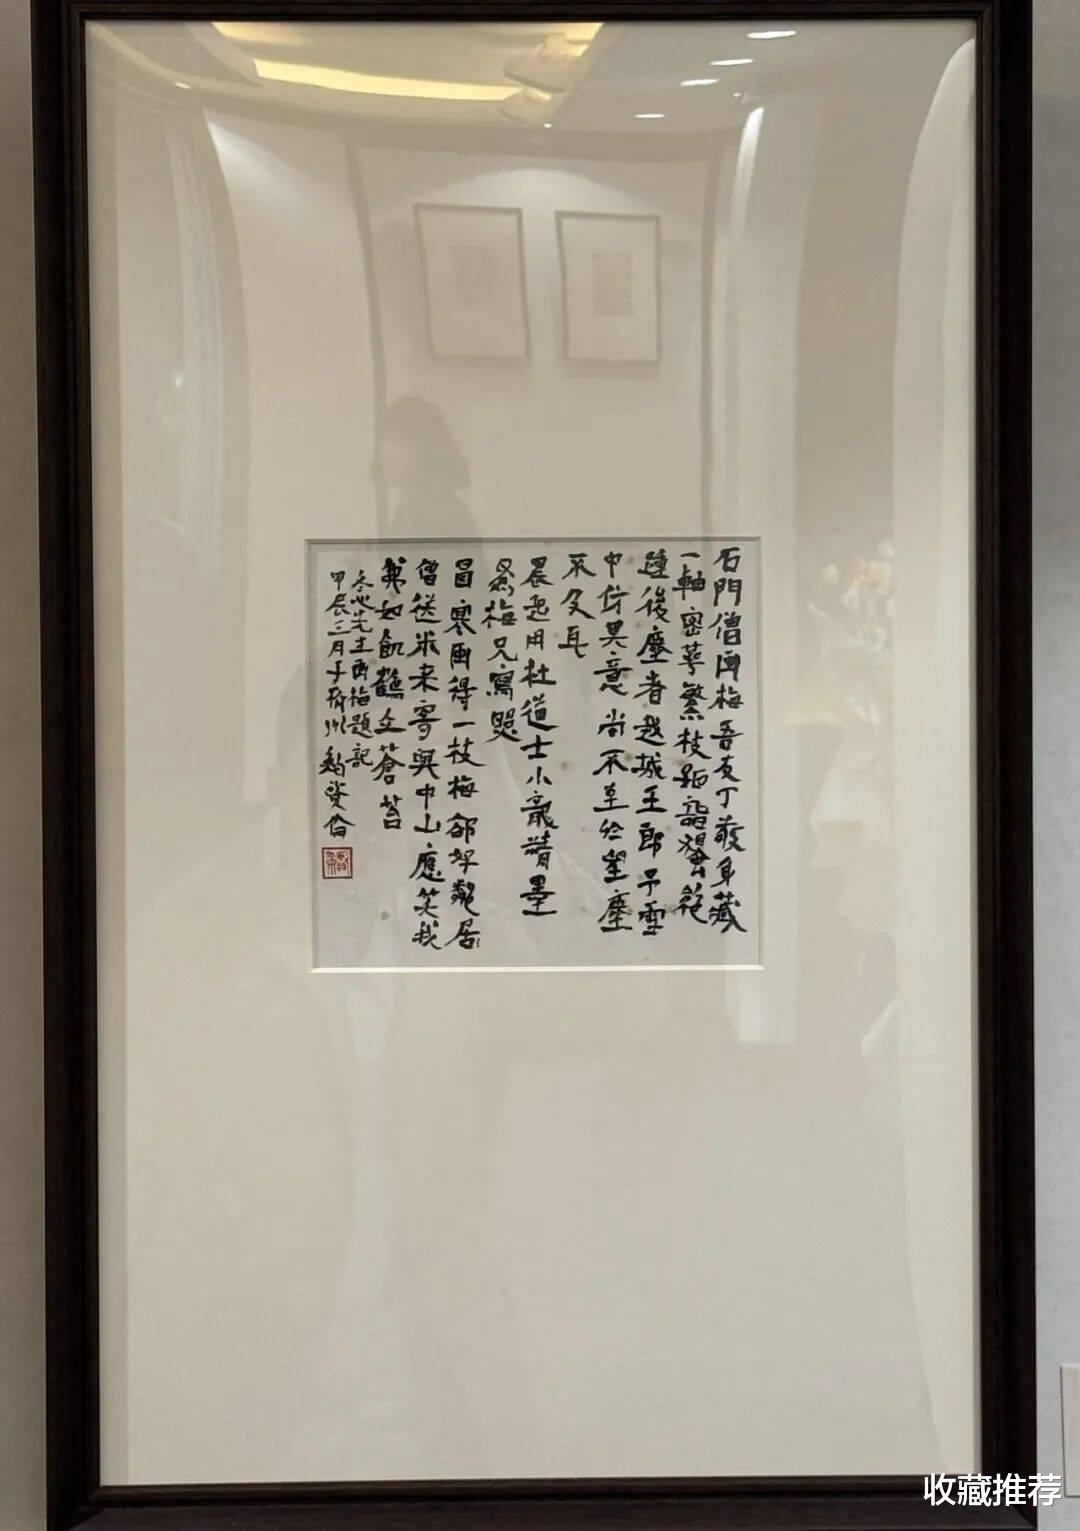 石門僧画梅吾友丁敬身藏
一軸密萼繁枝
踵後塵者越城王郎予雪
中仿其意尚不至於望塵
不及耳
晨起用杜道士小龍精墨
為梅兄寫照
冒寒画得一枝梅卻好鄰居
僧送米來寄與中山應笑我
我如飢鶴立蒼苔
冬心先生画梅題記
甲辰三月于
收藏推荐